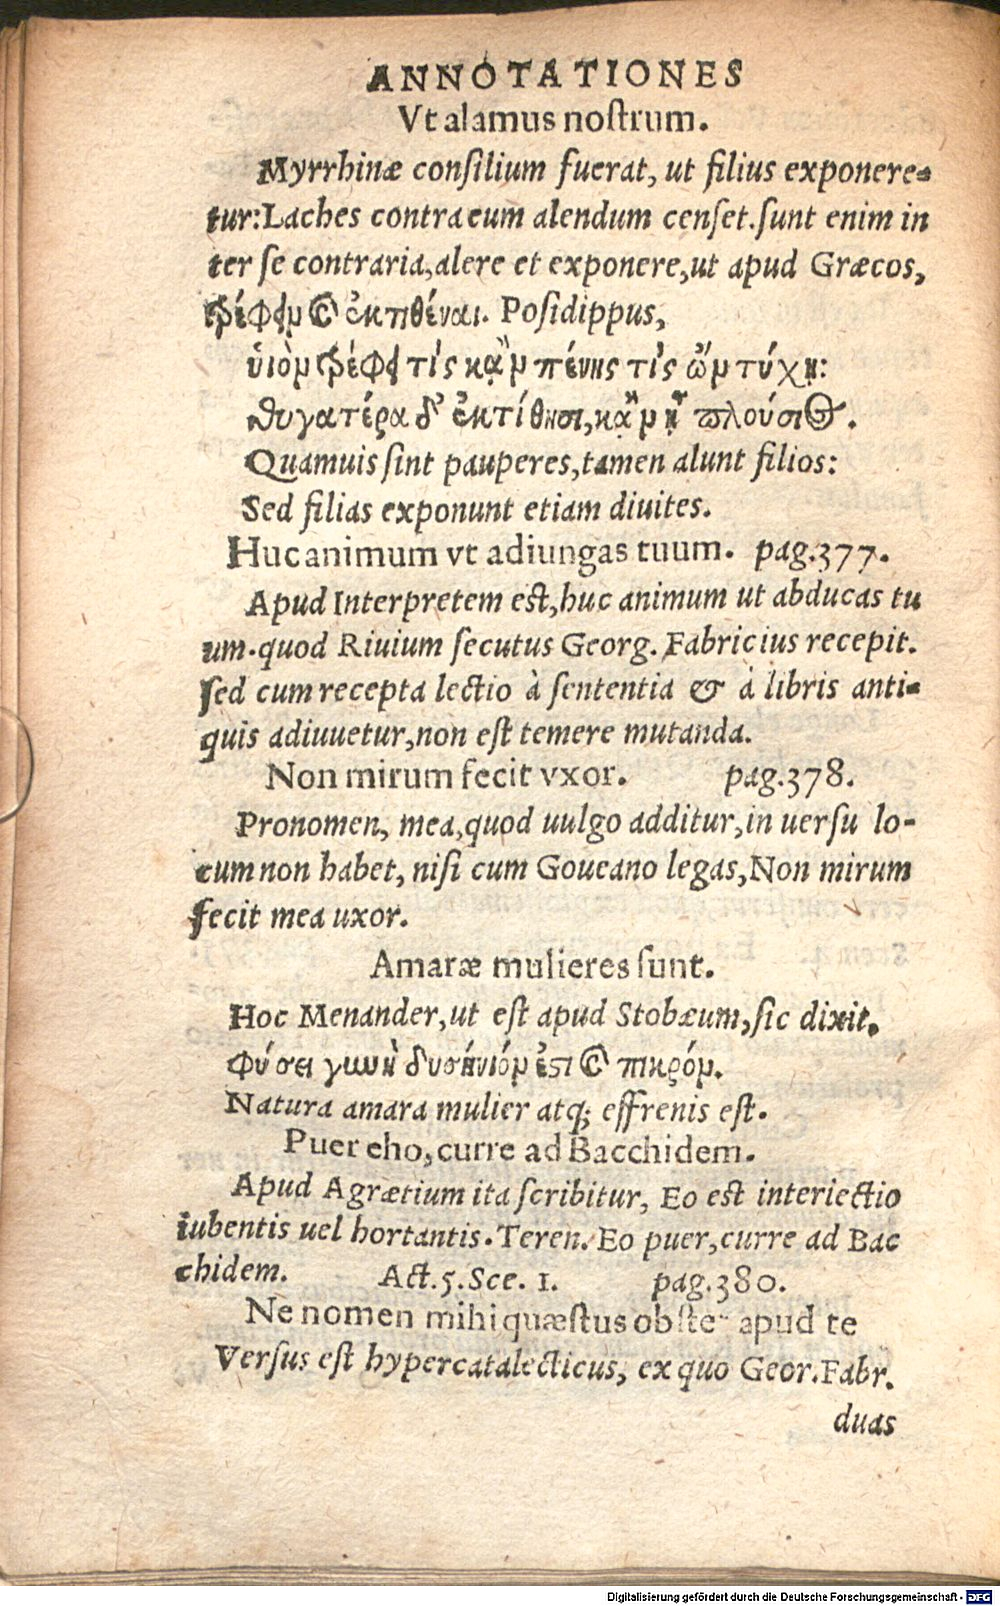 ANNOTATIONES
Vt alamus nostrum.
Myrrhinæ consilium fuerat, ut filius exponere-
tur: Laches contra eum alendum censet. sunt enim in
ter se contraria, alere et exponere, ut apud Græcos,
τρέφειν καὶ ἐκτιθέναι. Posidippus,
ὑιὸν τρέφει τὶς κᾂν πένης τὶς ὢν τύχῃ:
θυγατέρα δ' ἐκτίθησι, κᾂν ᾖ πλούσιος.
Quamuis sint pauperes, tamen alunt filios:
Sed filias exponunt etiam diuites.
Huc animum vt adiungas tuum. pag.377.
Apud Interpretem est, huc animum ut abducas tu
um. quod Riuium secutus Georg. Fabricius recepit.
sed cum recepta lectio à sententia & à libris anti-
quis adiuuetur, non est temere mutanda.
Non mirum fecit vxor. pag.378.
Pronomen, mea, quod uulgo additur, in uersu lo-
cum non habet, nisi cum Goueano legas, Non mirum
fecit mea uxor.
Amaræ mulieres sunt.
Hoc Menander, ut est apud Stobæum, sic dixit.
φύσει γυνὴ δυσήνιόν ἐστι καὶ πικρόν.
Natura amara mulier atq; effrenis est.
Puer eho, curre ad Bacchidem.
Apud Agrætium ita scribitur, Eo est interiectio
iubentis uel hortantis. Teren. Eo puer, curre ad Bac
chidem. Act.5.Sce. 1. pag.380.
Ne nomen mihi quæstus obstet apud te
Versus est hypercatalecticus, ex quo Geor. Fabr.
duas
Digitalisierung gefördert durch die Deutsche Forschungsgemeinschaft - DFG